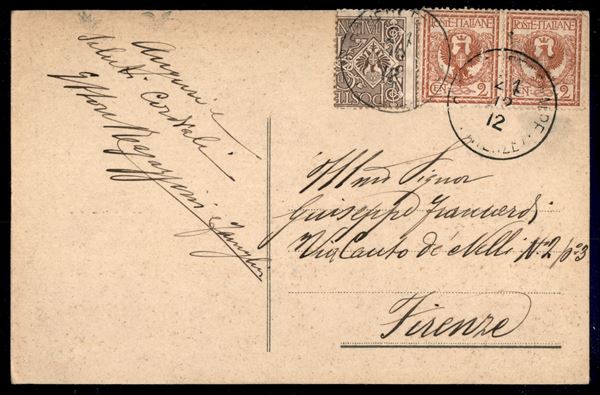 Auguri e
Saluti Cordiali
POSTE ITALIANE
POSTE ITALIANE
CEN 2
CEN 2
FIRENZE
24
12
12
Ill.mo Signor
Giuseppe
Via Canto de' Nelli N.o 2 p.o 3
Firenze